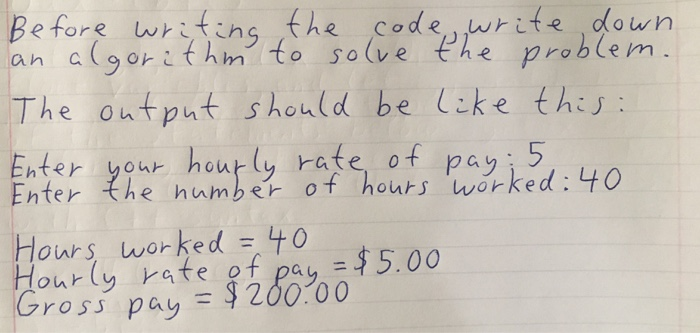 Before writing the code, write down
an algorithm to solve the problem.
The output should be like this:
Enter your hourly rate of pay: 5
Enter the number of hours worked: 40
Hours worked = 40
Hourly rate of pay = $5.00
Gross pay = $200.00